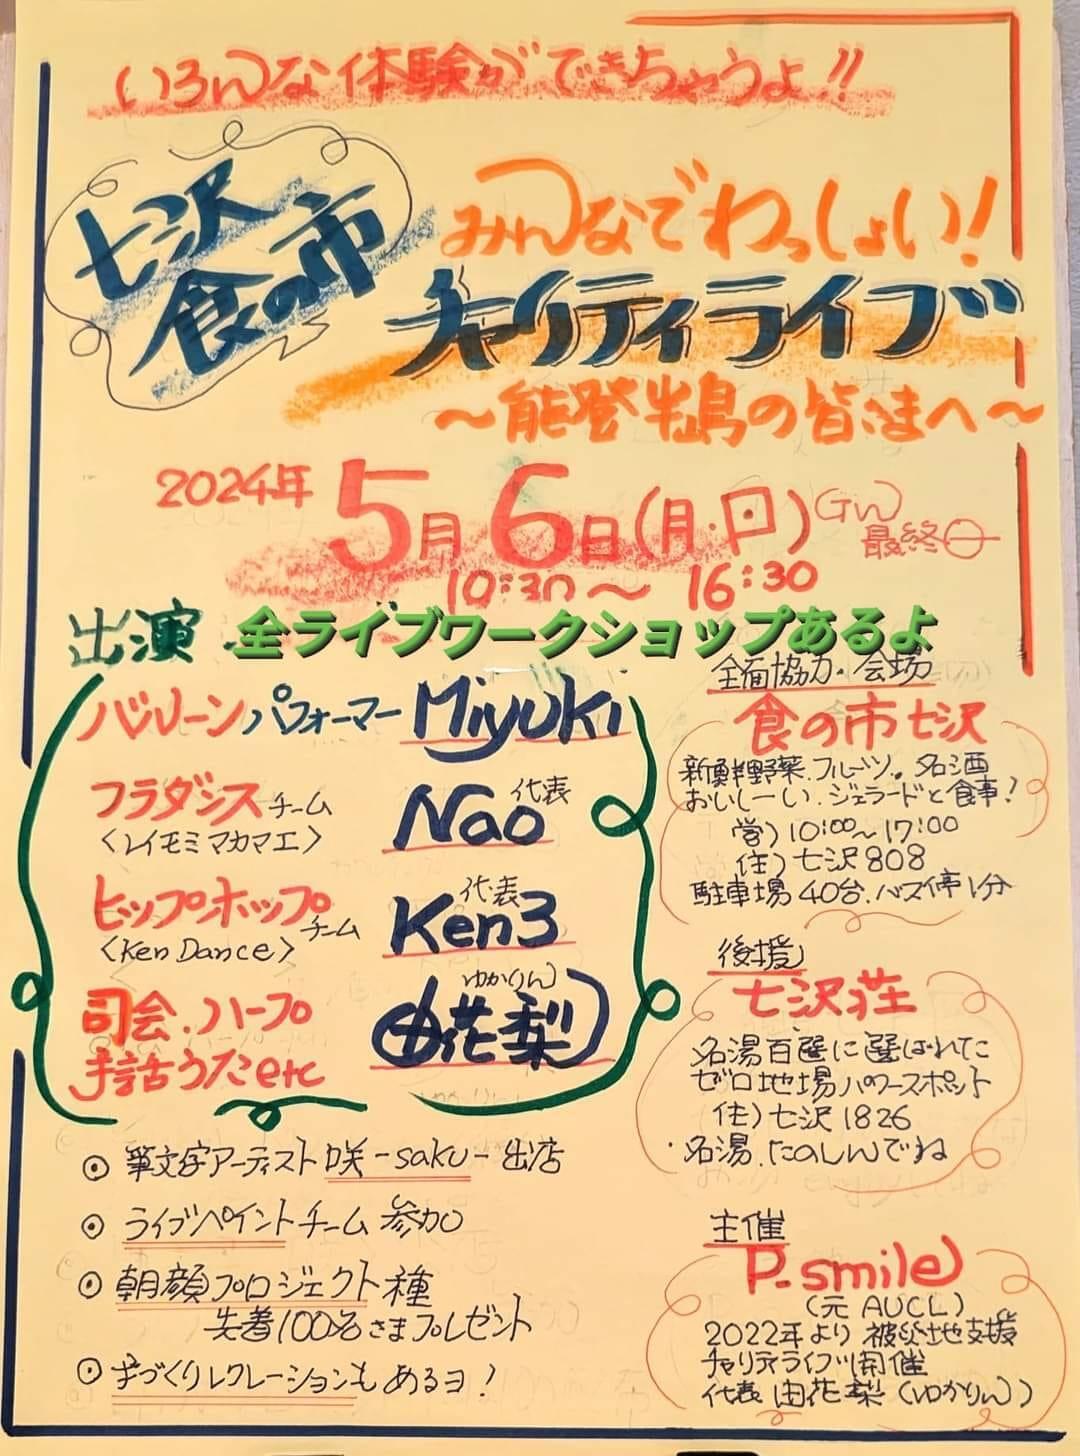 いろんな体験ができちゃうよ!!
七沢
食の市
みんなでわっしょい!
チャリティライブ
〜能登半島の皆さまへ〜
2024年 5月6日(月・日) GW
最終日
10:30〜16:30
出演 全ライブワークショップあるよ
バルーンパフォーマー Miyuki
フラダンスチーム
<レイモミマカマエ>
代表
Nao
ヒップホップチーム
<Ken Dance>
代表
Ken3
司会.ハープ
手話うたetc
ゆかりん
由花梨
◎ 筆文字アーティスト咲-saku-出店
◎ ライブペイントチーム参加
◎ 朝顔プロジェクト種
先着100名さまプレゼント
◎ 手づくりレクレーションもあるヨ!
全面協力・会場
食の市七沢
新鮮野菜.フルーツ。名酒
おいしーい.ジェラードと食事!
営)10:00〜17:00
(住)七沢808
駐車場40台.バス停1分
後援
七沢荘
名湯百選に選ばれてに
ゼロ地場パワースポット
(住)七沢1826
・名湯.たのしんでね
主催
P-smile
(元AUCL)
2022年より被災地支援
チャリティライブ開催
代表 由花梨(ゆかりん)